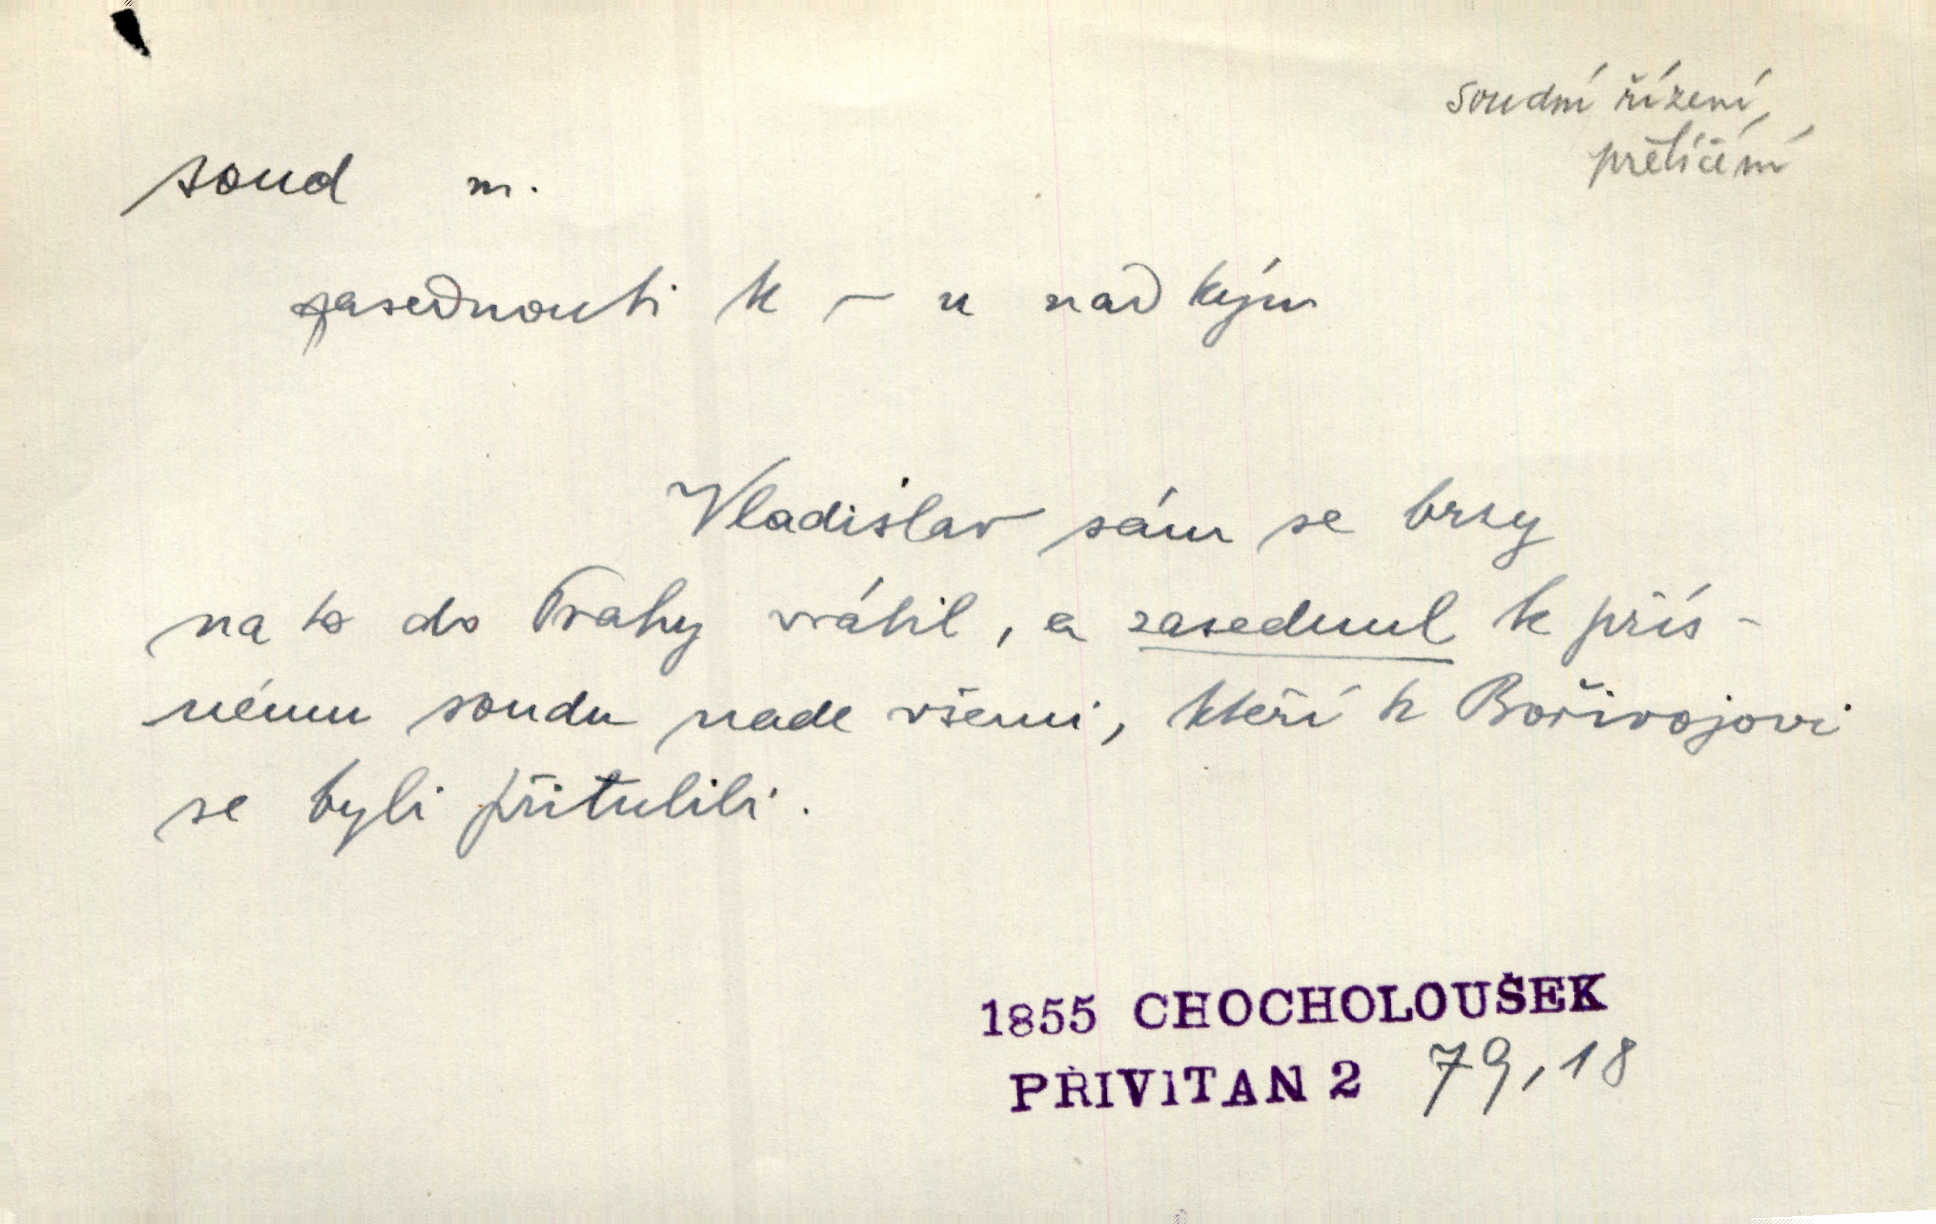 soudní řízení,
přelíčení
soud m.
zasednouti k – u nad kým
Vladislav sám se brzy
na to do Prahy vrátil, a zasednul k přís-
nému soudu nade všemi, kteří k Bořivojovi
se byli přitulili.
1855 CHOCHOLOUŠEK
PŘIVITAN 2 79,18